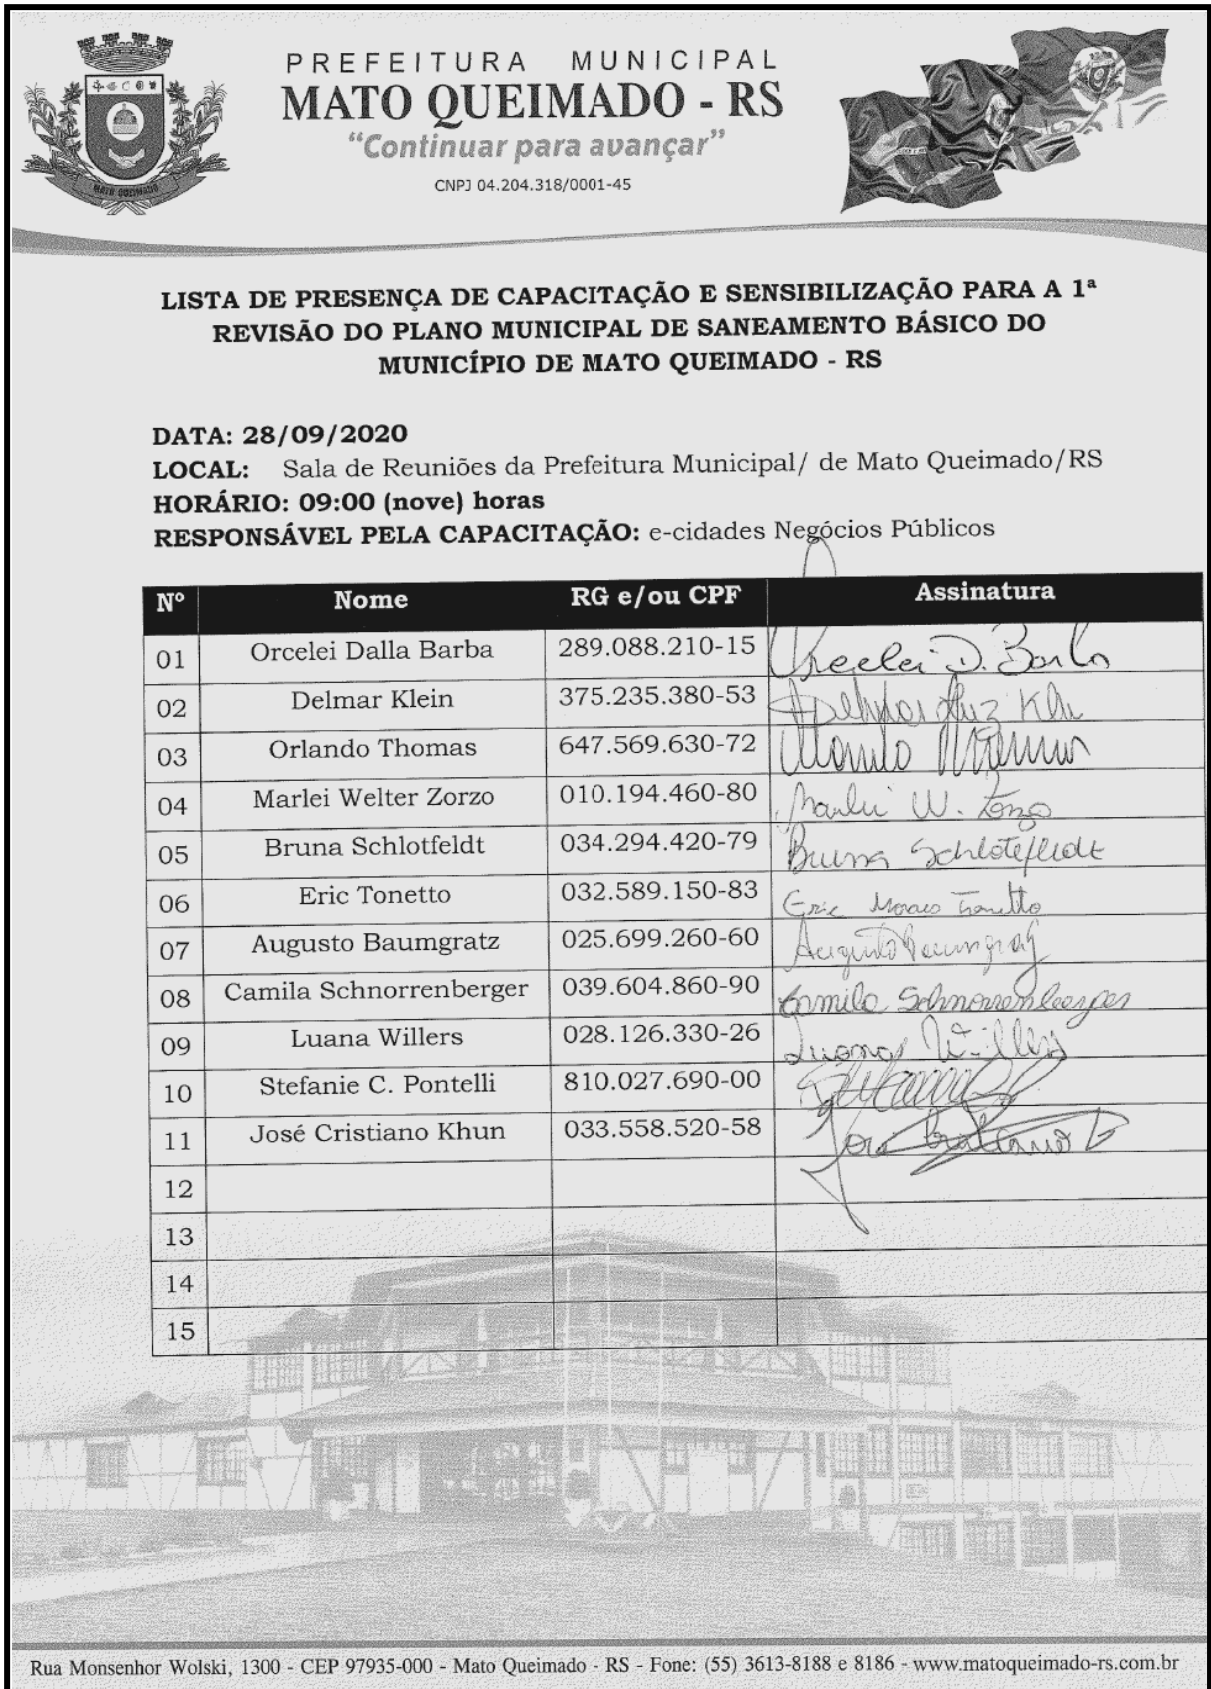 PREFEITURA MUNICIPAL
MATO QUEIMADO - RS
"Continuar para avançar"
CNPJ 04.204.318/0001-45
MATO QUEIMADO
LISTA DE PRESENÇA DE CAPACITAÇÃO E SENSIBILIZAÇÃO PARA A 1ª
REVISÃO DO PLANO MUNICIPAL DE SANEAMENTO BÁSICO DO
MUNICÍPIO DE MATO QUEIMADO - RS
DATA: 28/09/2020
LOCAL: Sala de Reuniões da Prefeitura Municipal/ de Mato Queimado/RS
HORÁRIO: 09:00 (nove) horas
RESPONSÁVEL PELA CAPACITAÇÃO: e-cidades Negócios Públicos
Nº Nome RG e/ou CPF Assinatura
01 Orcelei Dalla Barba 289.088.210-15 Orcelei D. Barba
02 Delmar Klein 375.235.380-53
03 Orlando Thomas 647.569.630-72
04 Marlei Welter Zorzo 010.194.460-80 Marlei W. Zorzo
05 Bruna Schlotfeldt 034.294.420-79 Bruna Schlotfeldt
06 Eric Tonetto 032.589.150-83 Eric Moraes Tonetto
07 Augusto Baumgratz 025.699.260-60 Augusto Baumgratz
08 Camila Schnorrenberger 039.604.860-90 Camila Schnorrenberger
09 Luana Willers 028.126.330-26 Luana Willers
10 Stefanie C. Pontelli 810.027.690-00
11 José Cristiano Khun 033.558.520-58 José Cristiano
12
13
14
15
Rua Monsenhor Wolski, 1300 - CEP 97935-000 - Mato Queimado - RS - Fone: (55) 3613-8188 e 8186 - www.matoqueimado-rs.com.br